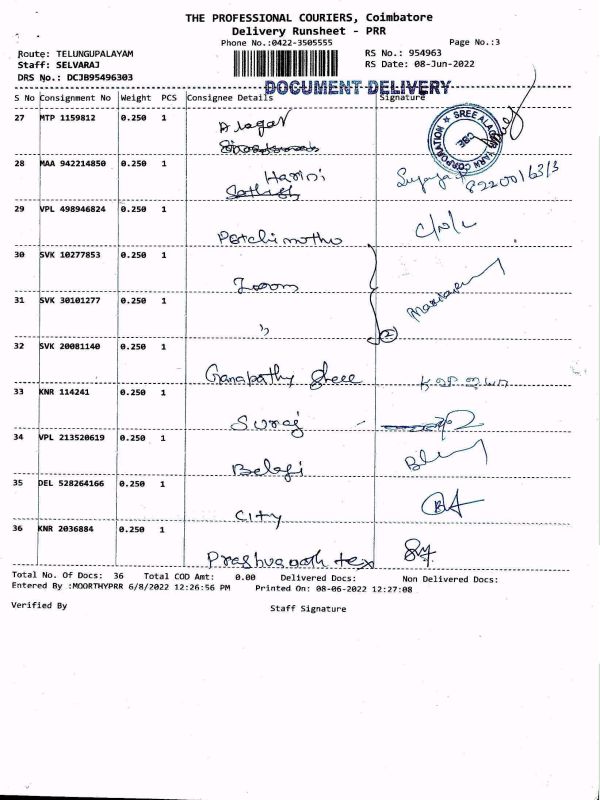 THE PROFESSIONAL COURIERS, Coimbatore
Delivery Runsheet - PRR
Phone No.:0422-3505555 Page No.:3
Route: TELUNGUPALAYAM RS No.: 954963
Staff: SELVARAJ RS Date: 08-Jun-2022
DRS No.: DCJB95496303
DOCUMENT DELIVERY
S No Consignment No Weight PCS Consignee Details Signature
27 MTP 1159812 0.250 1
Alagar
28 MAA 942214850 0.250 1
Harini
Sathish
29 VPL 498946824 0.250 1
C/N/L
30 SVK 10277853 0.250 1
Zoom
31 SVK 30101277 0.250 1
"
2
32 SVK 20081140 0.250 1
Ganapathy Shree
33 KNR 114241 0.250 1
Suraj
34 VPL 213520619 0.250 1
Balaji
35 DEL 528264166 0.250 1
City
36 KNR 2036884 0.250 1
Prashvanath tex
Total No. Of Docs: 36 Total COD Amt: 0.00 Delivered Docs: Non Delivered Docs:
Entered By :MOORTHYPRR 6/8/2022 12:26:56 PM Printed On: 08-06-2022 12:27:08
Verified By Staff Signature